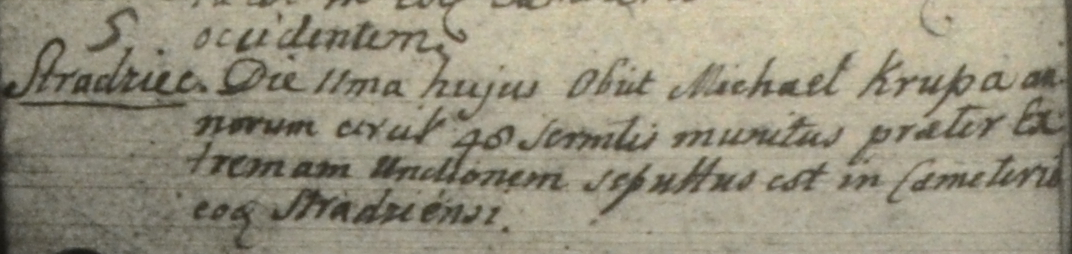 5 occidentem
Stradziec. Die 11ma hujus Obiit Michael Krupa an-
norum circit 48 Sermtis munitus præter Ex
tremam Unctionem sepultus est in Cæmeterio
eoq Stradziensi.